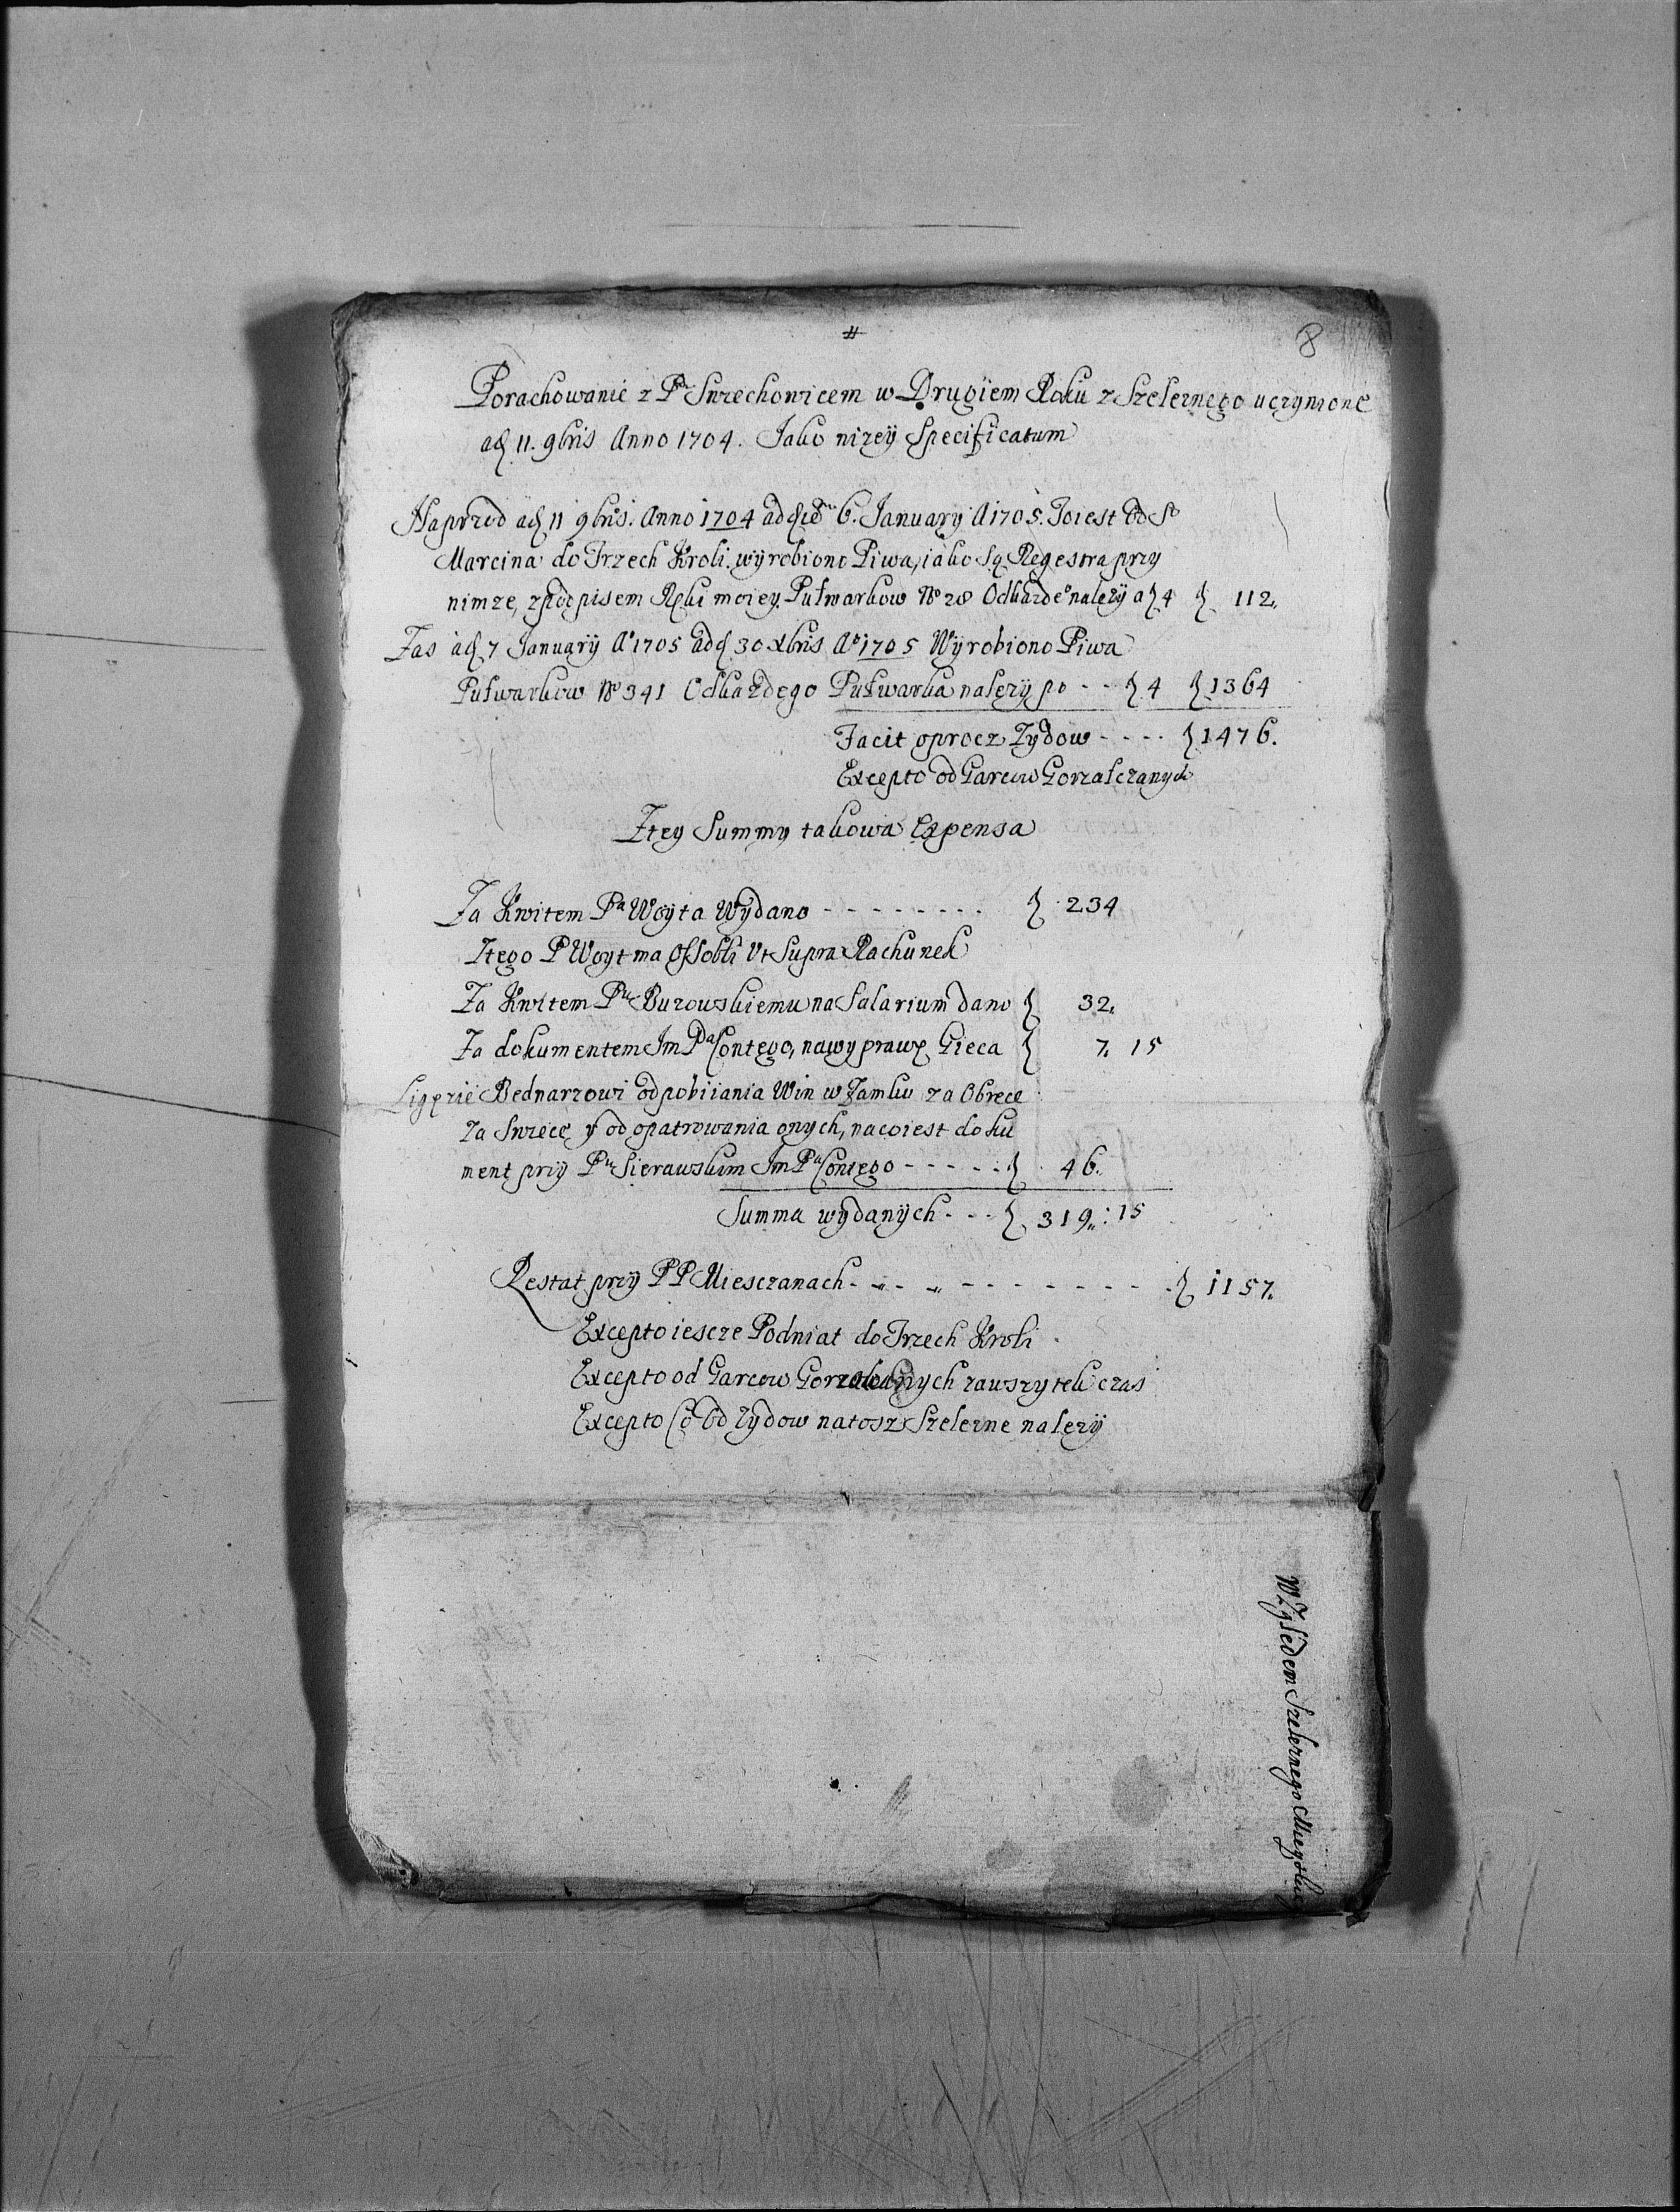 8
Porachowanie z Pm Swiechowicem w Drugiem Roku z Szeleznego uczynione
ad 11. 9bris Anno 1704. Jako nizey Specificatum
Naprzod ad 11 9bris. Anno 1704 ad 6. January A 1705. Toiest od So
Marcina do Trzech Kroli. wyrobiono Piwa, iako Są Regestra przy
nimze, z podpisem Ręki moiey. Putwarkow No 28 Odkazdeo nalezy a } 4 } 112
Zas ad 7 January Ao 1705 ad 30 Xbris Ao 1705 Wyrobiono Piwa
Putwarkow No 341 Odkazdego Putwarka nalezy po - - } 4 } 1364
Facit oprocz Zydow - - - - } 1476.
Excepto od Garcow Gorzalczanych
Ztey Summy takowa Expensa
Za Kwitem Pa Woyta Wydano - - - - - - - - } 234
Ztego P Woyt ma Ossobli Vt Supra Rachunek
Za Kwitem Pu Burowskiemu na Salarium dano } 32
Za dokumentem Im Pa Contego, na wyprawę Gieca } 7. 15
Bednarzowi od pobiiania Win w Zamku za Obręcę
za Swiece y od opatrowania onych, naco iest doku
ment przy Pu Sierawskim Im Pa Contego - - - - - } 46.
Summa wydanych - - - } 319 : 15
Restat przy PP Miesczanach - - - - - - - - - } 1157.
Excepto iescze Podniat do Trzech Kroli
Excepto od Garcow zawszytek czas
Excepto Co od Zydow natosz Szelezne nalezy
Szeleznego